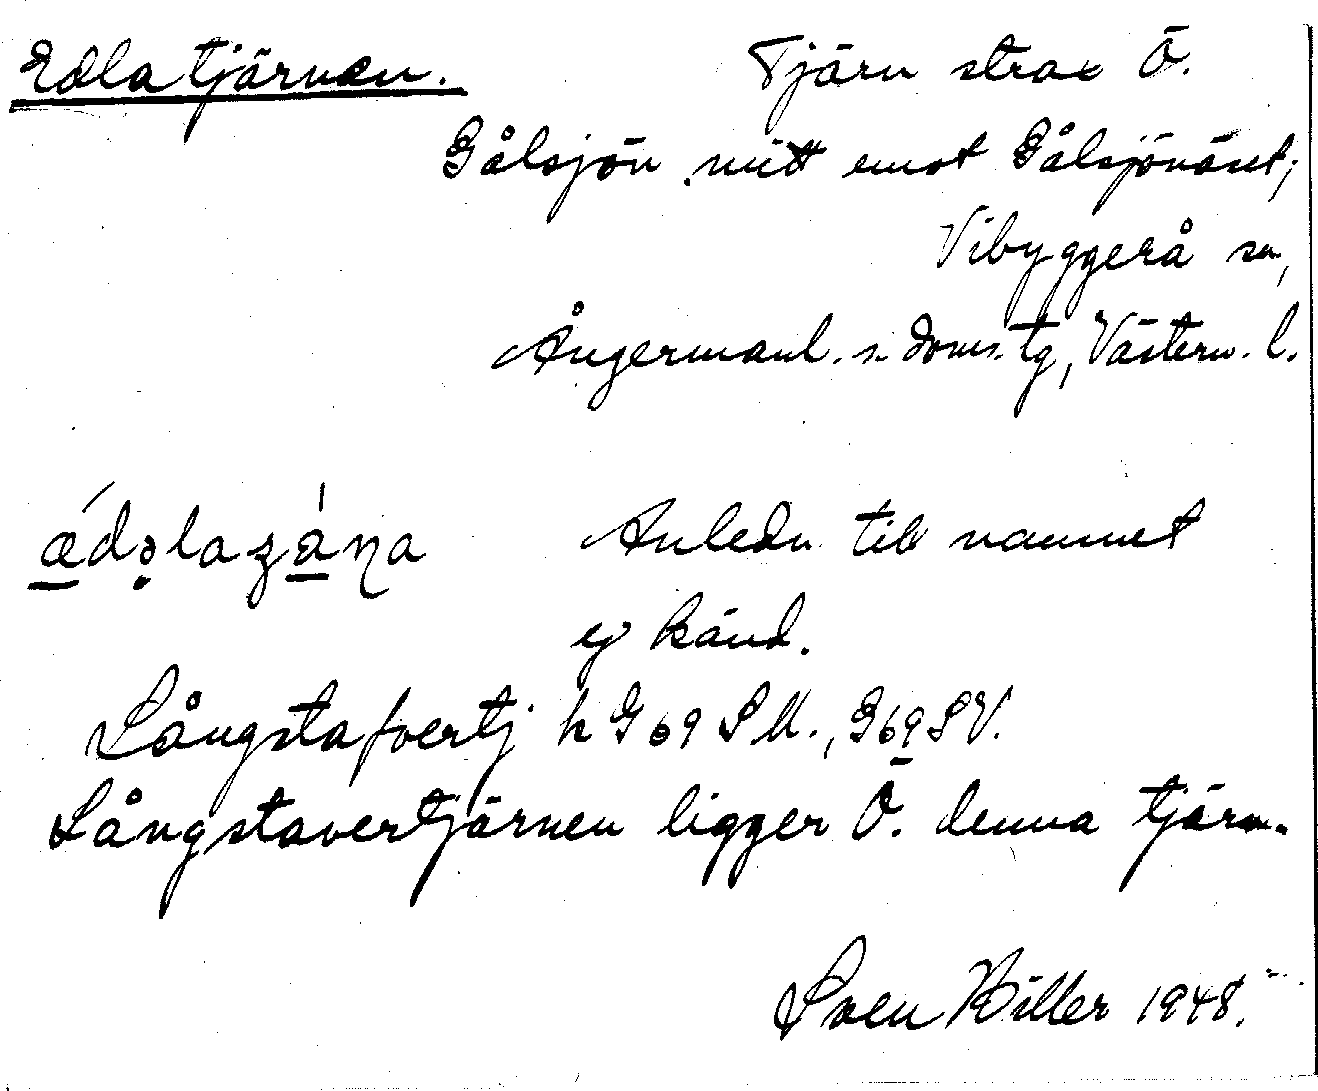 Edlatjärnen.
Tjärn strax Ö.
Gålsjön mitt emot Gålsjönäset;
Vibyggerå sn,
Ångermanl. s. doms. tg, Västern. l.
ǽdəlaʒána Anledn till namnet
ej känd.
Långstafvertj h G69 SM., G69SV.
Långstavertjärnen ligger Ö. denna tjärn.
Sven Hiller 1948.